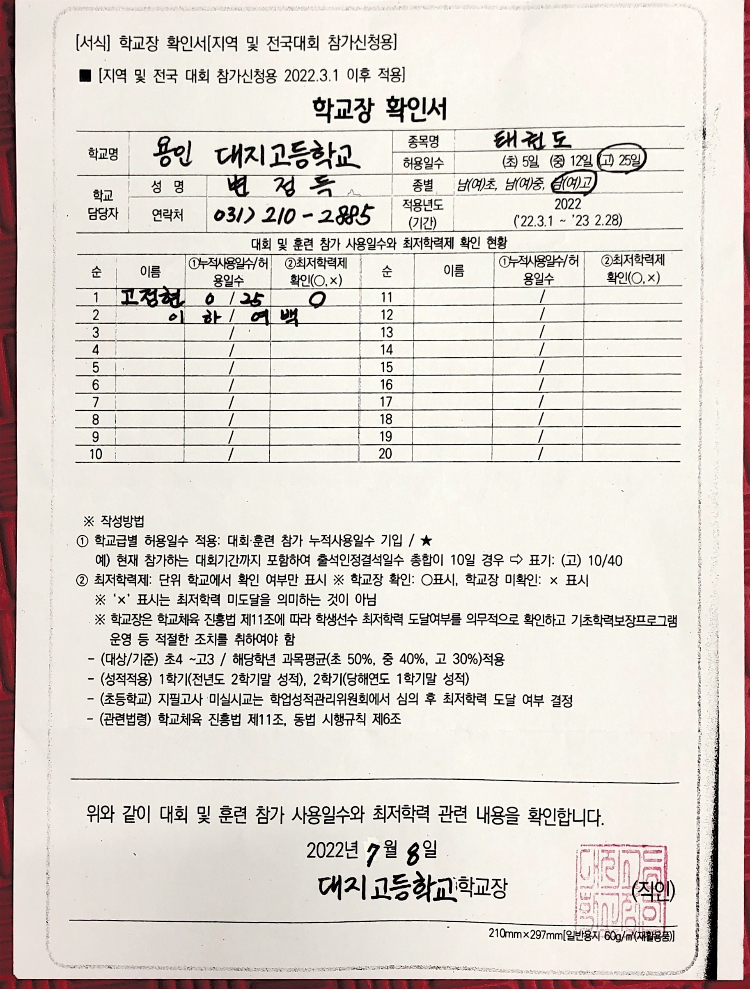 [서식] 학교장 확인서[지역 및 전국대회 참가신청용]
■ [지역 및 전국 대회 참가신청용 2022.3.1 이후 적용]
학교장 확인서
학교명 용인 대지고등학교 종목명 태권도
허용일수 (초) 5일 (중) 12일 (고) 25일
학교 담당자 성 명 변 정 득 종별 남(여)초, 남(여)중, 남(여)고
연락처 031) 210-2885 적용년도 (기간) 2022 ('22.3.1 ~ '23 2.28)
대회 및 훈련 참가 사용일수와 최저학력제 확인 현황
순 이름 ①누적사용일수/허용일수 ②최저학력제 확인(○,×) 순 이름 ①누적사용일수/허용일수 ②최저학력제 확인(○,×)
1 고정현 0 / 25 ○ 11 /
2 이 하 / 여 백 12 /
3 / 13 /
4 / 14 /
5 / 15 /
6 / 16 /
7 / 17 /
8 / 18 /
9 / 19 /
10 / 20 /
※ 작성방법
① 학교급별 허용일수 적용: 대회·훈련 참가 누적사용일수 기입 / ★
예) 현재 참가하는 대회기간까지 포함하여 출석인정결석일수 총합이 10일 경우 ⇨ 표기: (고) 10/40
② 최저학력제: 단위 학교에서 확인 여부만 표시 ※ 학교장 확인: ○표시, 학교장 미확인: × 표시
※ '×' 표시는 최저학력 미도달을 의미하는 것이 아님
※ 학교장은 학교체육 진흥법 제11조에 따라 학생선수 최저학력 도달여부를 의무적으로 확인하고 기초학력보장프로그램
운영 등 적절한 조치를 취하여야 함
- (대상/기준) 초4 ~고3 / 해당학년 과목평균(초 50%, 중 40%, 고 30%)적용
- (성적적용) 1학기(전년도 2학기말 성적), 2학기(당해연도 1학기말 성적)
- (초등학교) 지필고사 미실시교는 학업성적관리위원회에서 심의 후 최저학력 도달 여부 결정
- (관련법령) 학교체육 진흥법 제11조, 동법 시행규칙 제6조
위와 같이 대회 및 훈련 참가 사용일수와 최저학력 관련 내용을 확인합니다.
2022년 7월 8일
대지고등학교 학교장 (직인)
210mm×297mm[일반용지 60g/㎡(재활용품)]